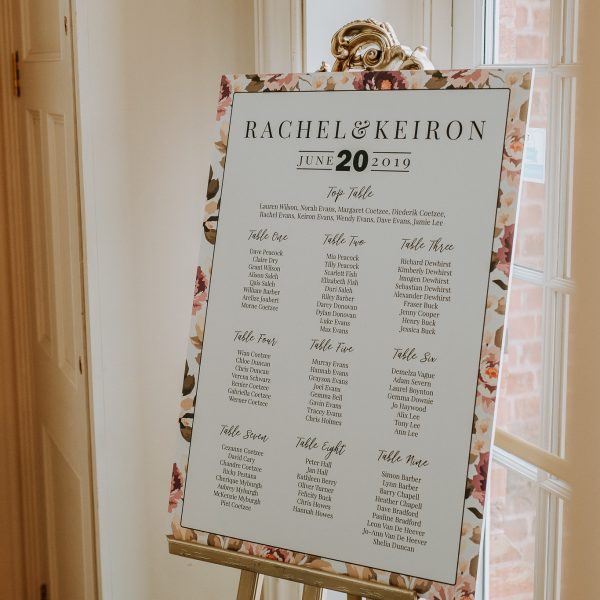 RACHEL&KEIRON
JUNE 20 2019
Top Table
Lauren Wilson, Norah Evans, Margaret Coetzee, Diederik Coetzee,
Rachel Evans, Keiron Evans, Wendy Evans, Dave Evans, Jamie Lee
Table One
Dave Peacock
Claire Dry
Grant Wilson
Alison Saleh
Qais Saleh
William Barber
Aroline Joubert
Morne Coetzee
Table Two
Mia Peacock
Tilly Peacock
Scarlett Fish
Elizabeth Fish
Dori Saleh
Riley Barber
Darcy Donovan
Dylan Donovan
Luke Evans
Max Evans
Table Three
Richard Dewhirst
Kimberly Dewhirst
Imogen Dewhirst
Sebastian Dewhirst
Alexander Dewhirst
Fraser Buck
Jenny Cooper
Henry Buck
Jessica Buck
Table Four
Wian Coetzee
Chloe Duncan
Chris Duncan
Verena Schwarz
Renier Coetzee
Gabriella Coetzee
Werner Coetzee
Table Five
Murray Evans
Hannah Evans
Grayson Evans
Joel Evans
Gemma Bell
Gavin Evans
Tracey Evans
Chris Holmes
Table Six
Demelza Vague
Adam Severn
Laurel Boynton
Gemma Downie
Jo Haywood
Alix Lee
Tony Lee
Ann Lee
Table Seven
Gezanne Coetzee
David Cary
Chandre Coetzee
Ricky Pestana
Cherique Myburgh
Aubrey Myburgh
McKenzie Myburgh
Piet Coetzee
Table Eight
Peter Hall
Jan Hall
Kathleen Berry
Oliver Turner
Felicity Buck
Chris Howes
Hannah Howes
Table Nine
Simon Barber
Lynn Barber
Barry Chapell
Heather Chapell
Dave Bradford
Pauline Bradford
Leon Van De Heever
Jo-Ann Van De Heever
Shelia Duncan